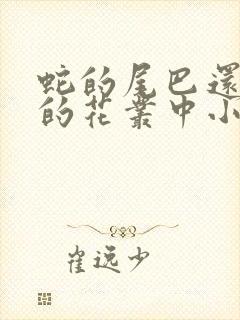 蛇的尾巴還
的花叢中小
崔逸少